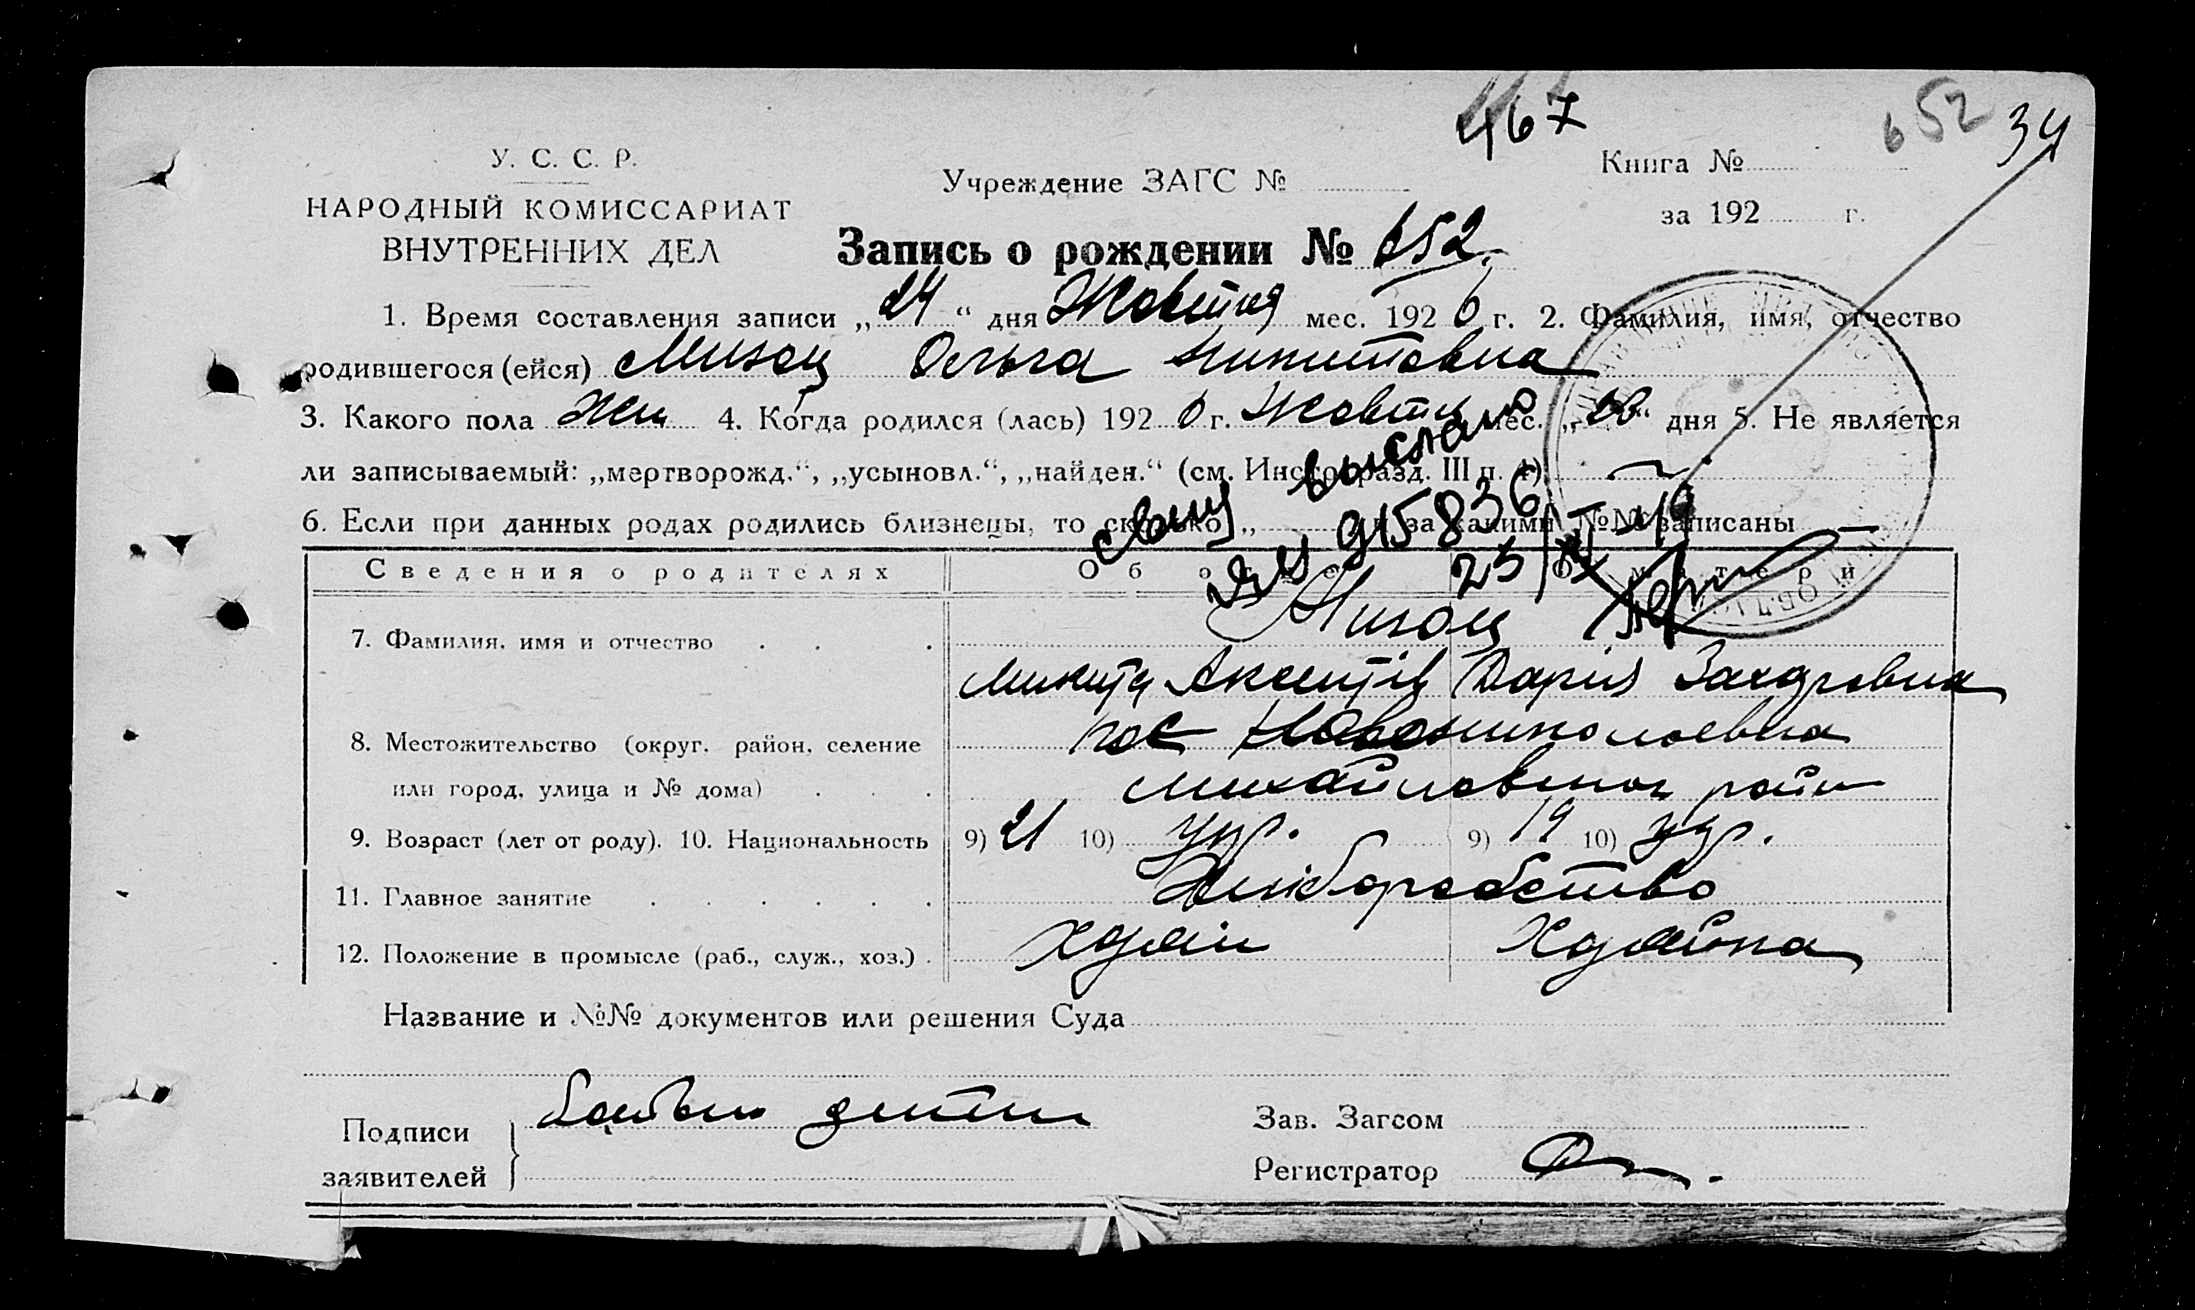 467
652 34
У. С. С. Р.
НАРОДНЫЙ КОМИССАРИАТ
ВНУТРЕННИХ ДЕЛ
Учреждение ЗАГС №
Книга №
за 192 г.
Запись о рождении № 652.
1. Время составления записи „24“ дня Жовтня мес. 1926 г. 2. Фамилия, имя, отчество
родившегося (ейся) Ольга Микитовна
3. Какого пола Жін 4. Когда родился (лась) 1926 г. Жовтн мес. „ “ дня 5. Не является
ли записываемый: „мертворожд.“, „усыновл.“, „найден.“ (см. Инстр. разд. III п. 4)
6. Если при данных родах родились близнецы, то сколько „ и за какими №№ записаны
выслано
915836
Сведения о родителях
Об отце
О матери
7. Фамилия, имя и отчество
Микита Аксентів Дарія Захаровна
8. Местожительство (округ. район, селение
или город, улица и № дома)
пос Новониколаевка
Михайловског район
9. Возраст (лет от роду). 10. Национальность 9) 21 10) укр. 9) 19 10) укр.
11. Главное занятие Хліборобство
12. Положение в промысле (раб., служ., хоз.) Хдяін Хдяйка
Название и №№ документов или решения Суда
Подписи
заявителей
Зав. Загсом
Регистратор